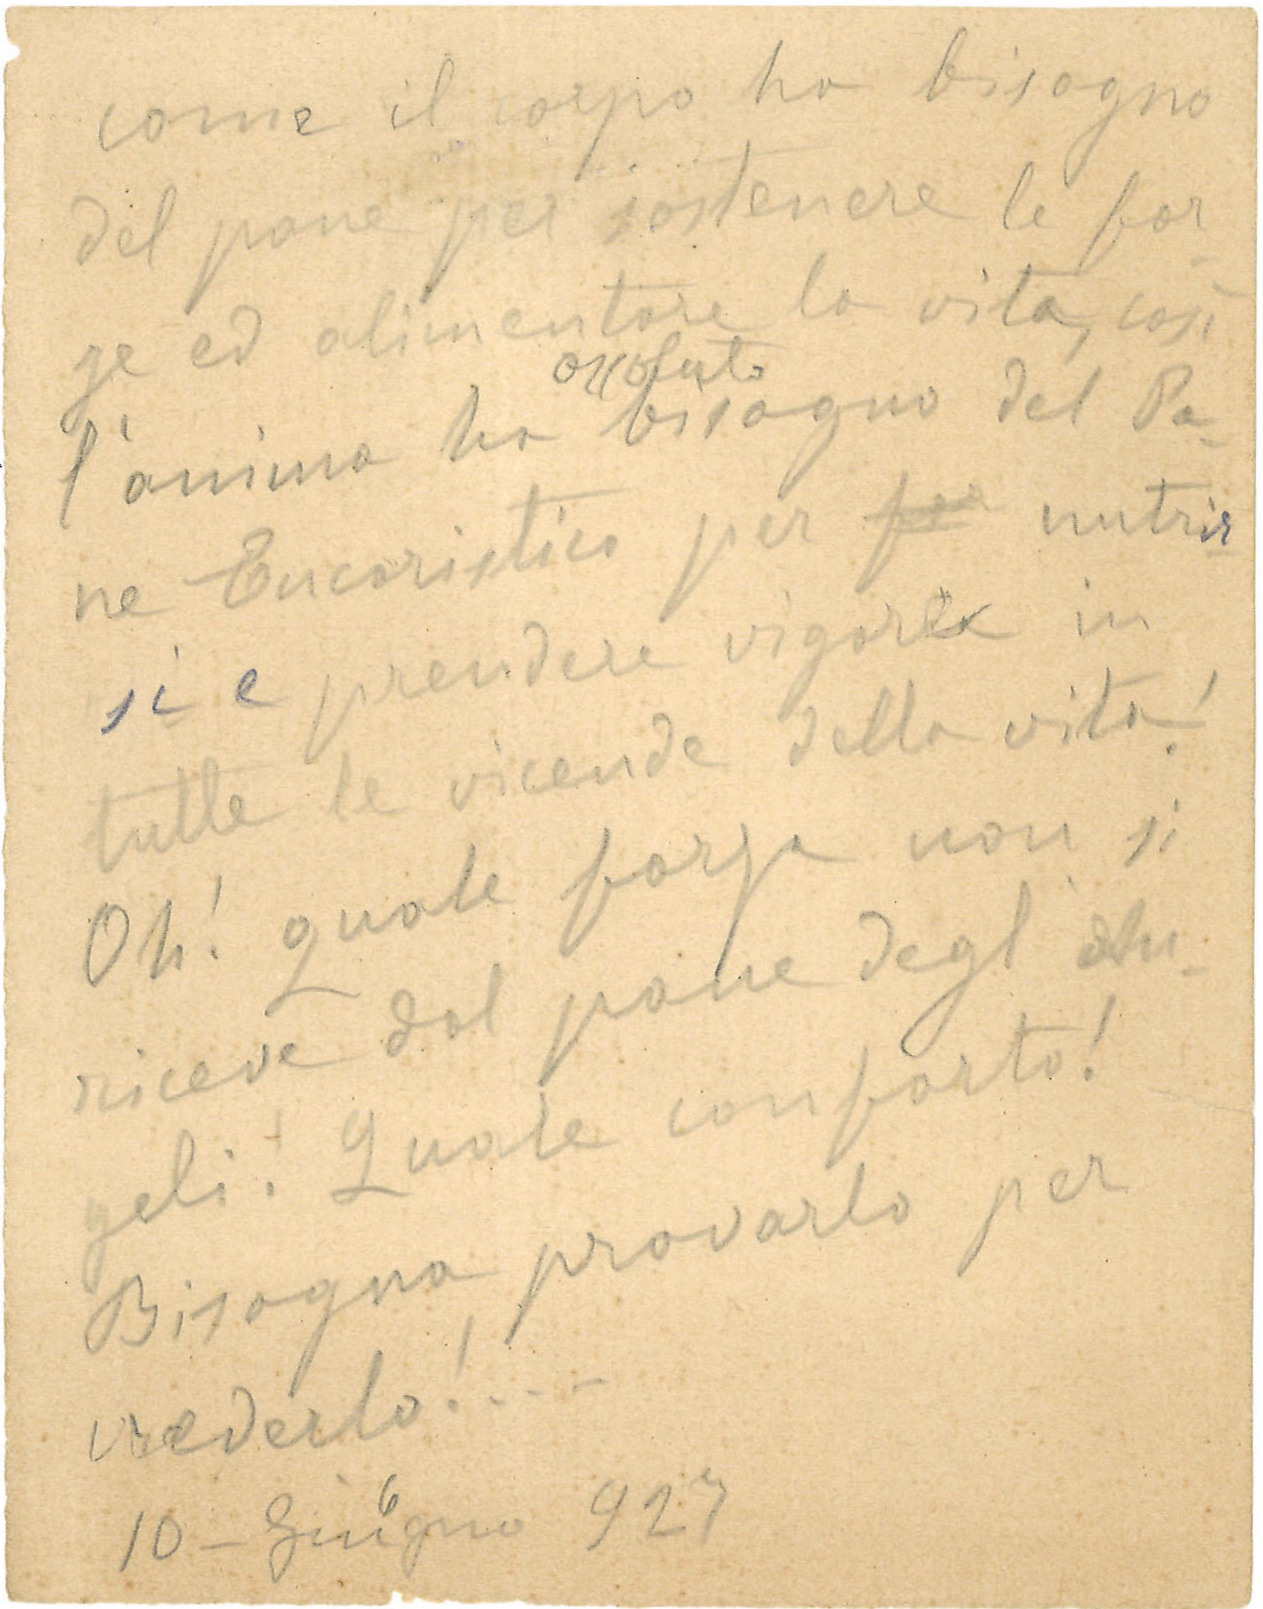 come il corpo ha bisogno
del pane per sostenere le for-
ze ed alimentare la vita, così
assoluto
l'anima ha bisogno del Pa-
ne Eucaristico per far nutrir
si e prendere vigore in
tutte le vicende della vita!
Oh! quale forza non si
riceve dal pane degl' An-
geli! Quale conforto!
Bisogna provarlo per
crederlo!...-
10 - Giugno 927